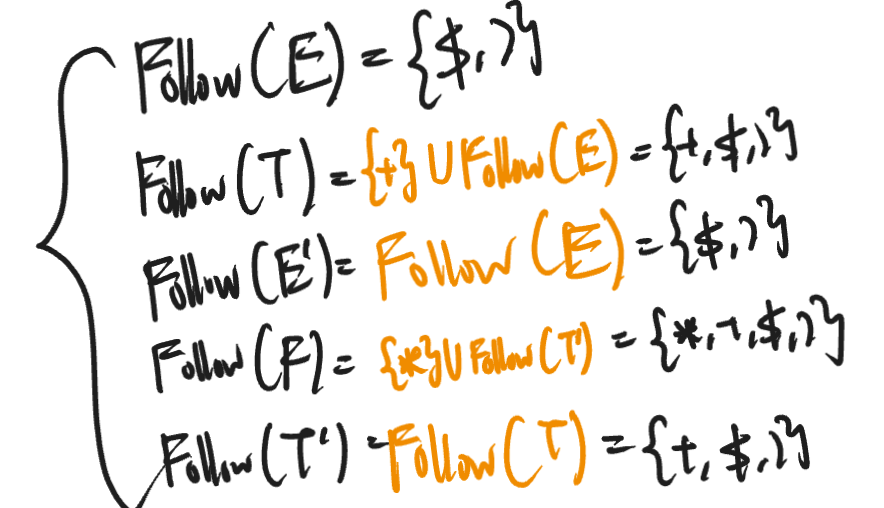 Follow(E) = {$, )}
Follow(T) = {+} ∪ Follow(E) = {+, $, )}
Follow(E') = Follow(E) = {$, )}
Follow(F) = {*} ∪ Follow(T') = {*, +, $, )}
Follow(T') = Follow(T) = {+, $, )}